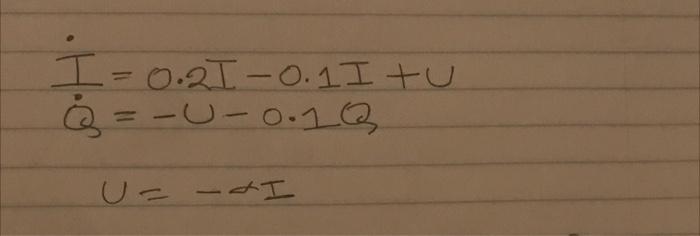 İ = 0.2I - 0.1I + U
Q̇ = -U - 0.1Q
U = -αI